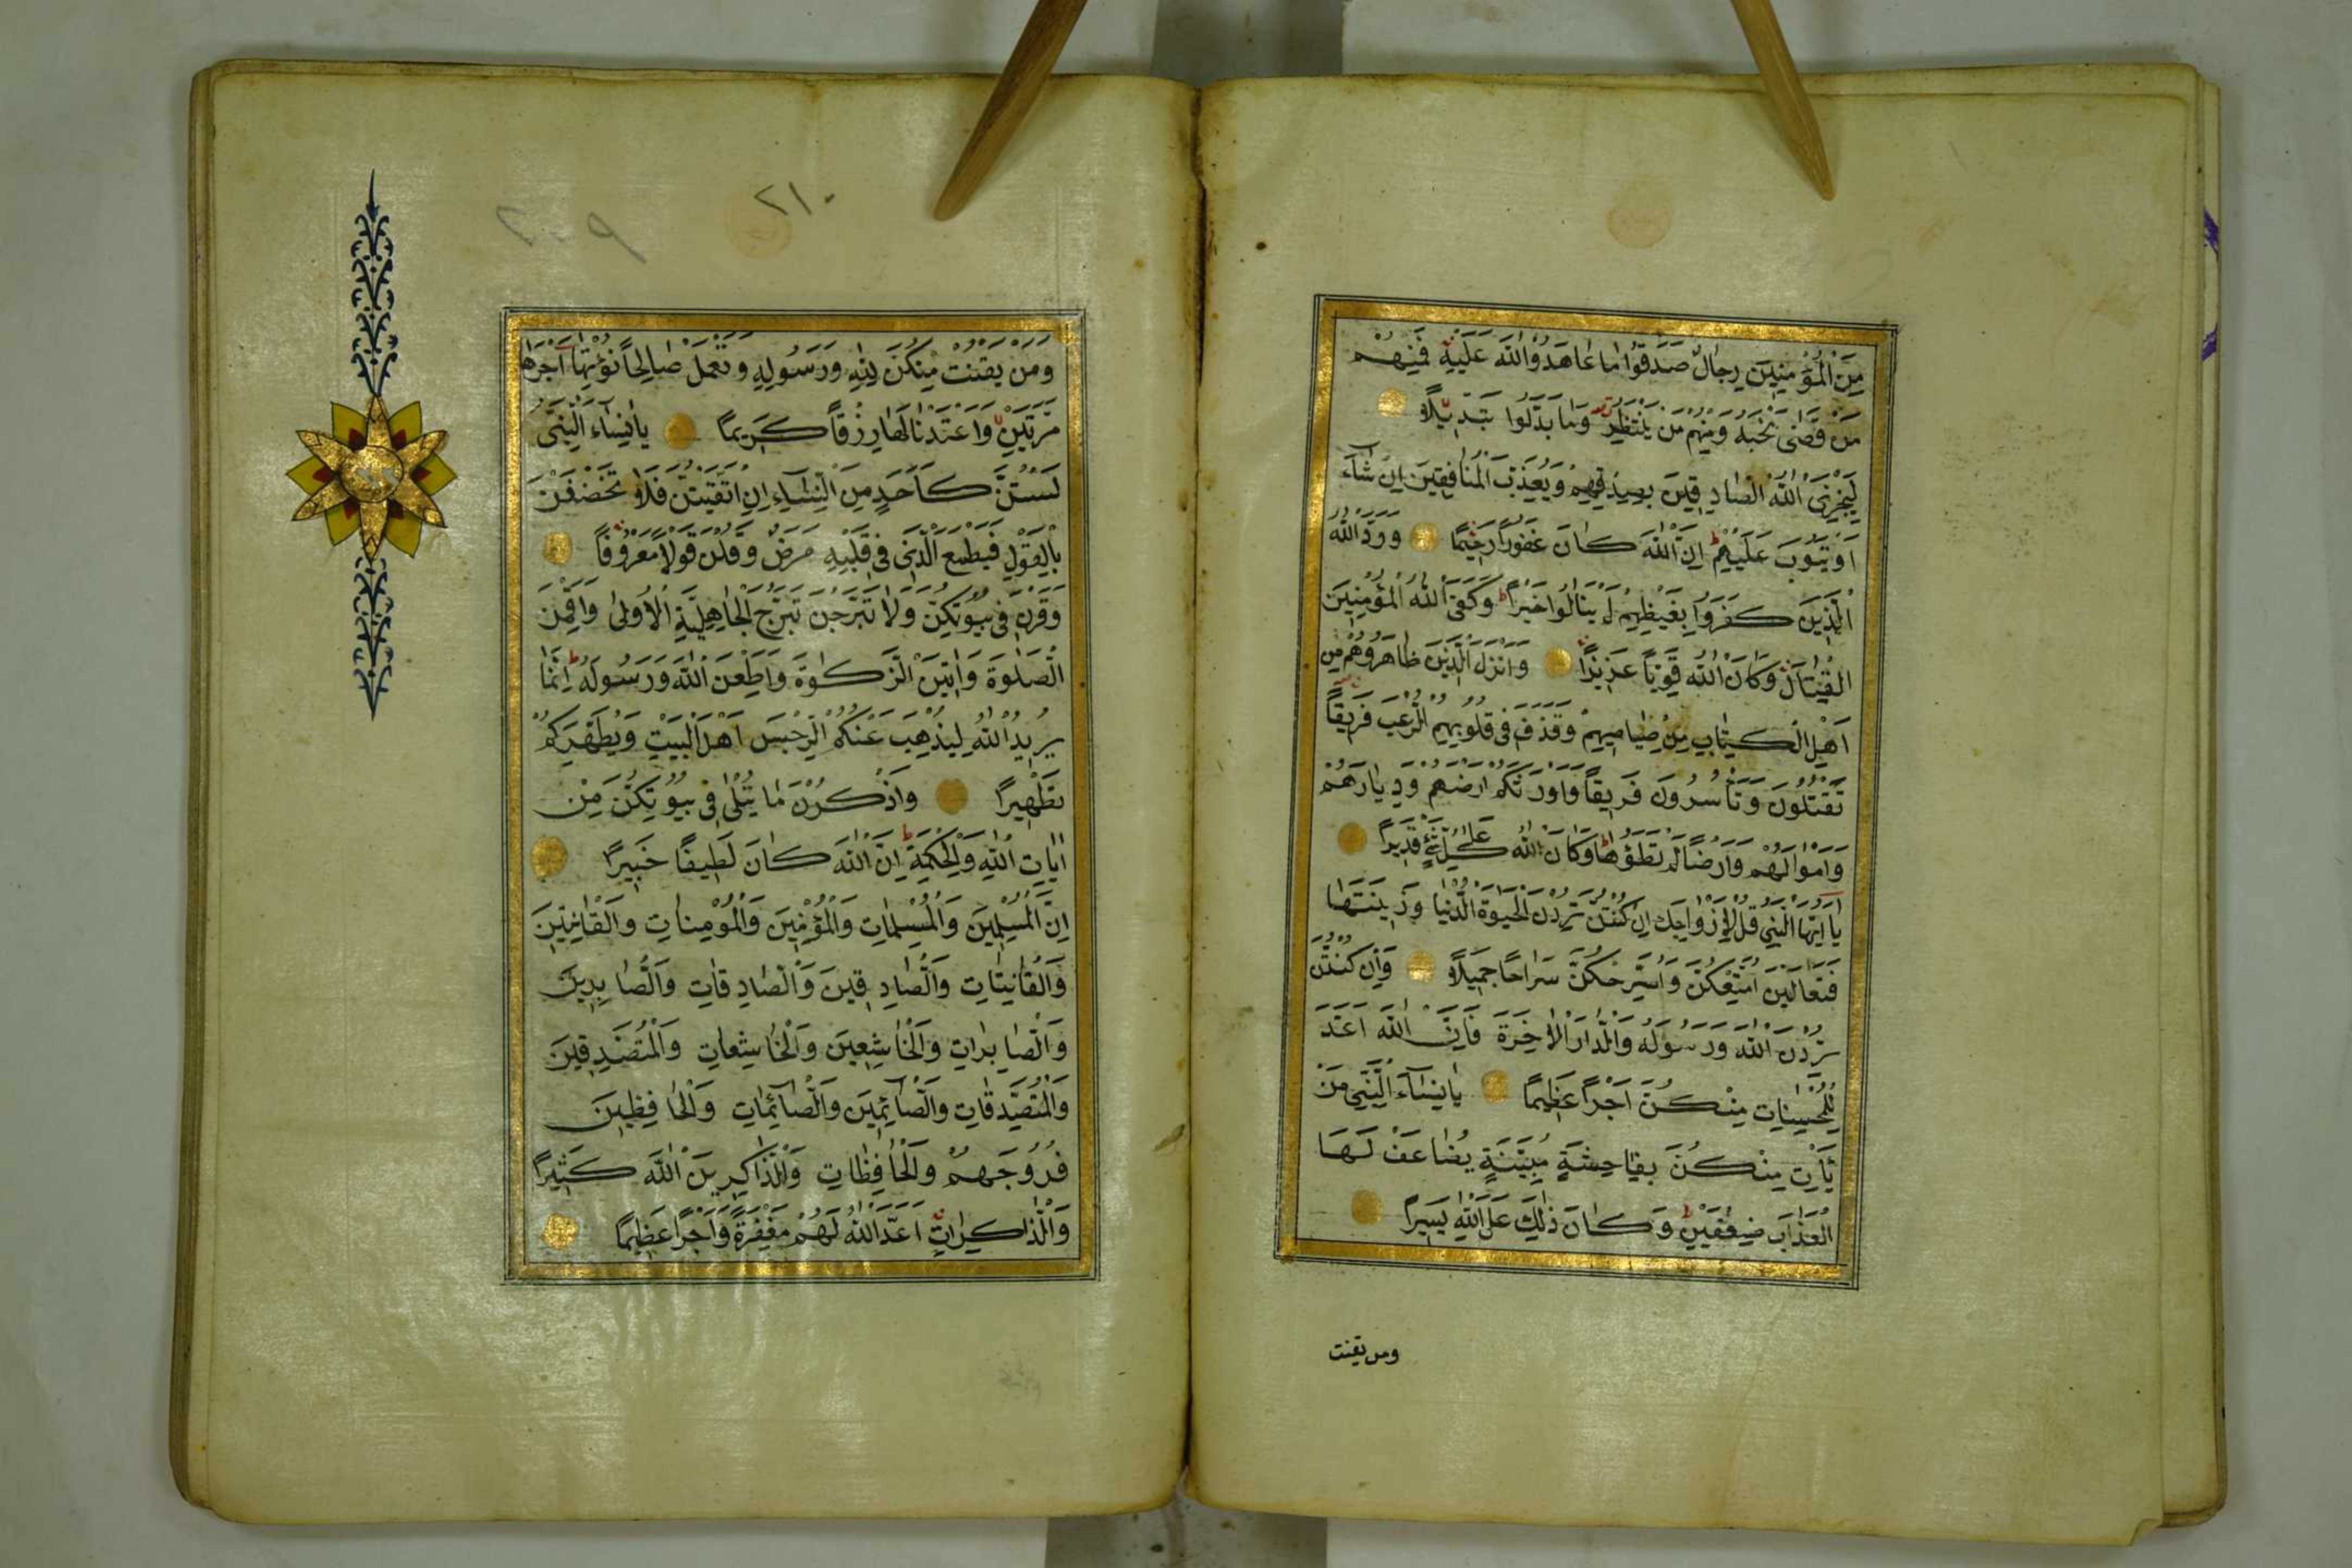 مِنَ الْمُؤْمِنِينَ رِجَالٌ صَدَقُوا مَا عَاهَدُوا اللّٰهَ عَلَيْهِ فَمِنْهُمْ
مَنْ قَضٰى نَحْبَهُ وَمِنْهُمْ مَنْ يَنْتَظِرُ وَمَا بَدَّلُوا تَبْدِيلًا
لِيَجْزِيَ اللّٰهُ الصَّادِقِينَ بِصِدْقِهِمْ وَيُعَذِّبَ الْمُنَافِقِينَ اِنْ شَاءَ
اَوْ يَتُوبَ عَلَيْهِمْ اِنَّ اللّٰهَ كَانَ غَفُورًا رَحِيمًا وَرَدَّ اللّٰهُ
الَّذِينَ كَفَرُوا بِغَيْظِهِمْ لَمْ يَنَالُوا خَيْرًا وَكَفَى اللّٰهُ الْمُؤْمِنِينَ
الْقِتَالَ وَكَانَ اللّٰهُ قَوِيًّا عَزِيزًا وَاَنْزَلَ الَّذِينَ ظَاهَرُوهُمْ مِنْ
اَهْلِ الْكِتَابِ مِنْ صَيَاصِيهِمْ وَقَذَفَ فِي قُلُوبِهِمُ الرُّعْبَ فَرِيقًا
تَقْتُلُونَ وَتَأْسِرُونَ فَرِيقًا وَاَوْرَثَكُمْ اَرْضَهُمْ وَدِيَارَهُمْ
وَاَمْوَالَهُمْ وَاَرْضًا لَمْ تَطَؤُهَا وَكَانَ اللّٰهُ عَلٰى كُلِّ شَيْءٍ قَدِيرًا
يَا اَيُّهَا النَّبِيُّ قُلْ لِاَزْوَاجِكَ اِنْ كُنْتُنَّ تُرِدْنَ الْحَيٰوةَ الدُّنْيَا وَزِينَتَهَا
فَتَعَالَيْنَ اُمَتِّعْكُنَّ وَاُسَرِّحْكُنَّ سَرَاحًا جَمِيلًا وَاِنْ كُنْتُنَّ
تُرِدْنَ اللّٰهَ وَرَسُولَهُ وَالدَّارَ الْاٰخِرَةَ فَاِنَّ اللّٰهَ اَعَدَّ
لِلْمُحْسِنَاتِ مِنْكُنَّ اَجْرًا عَظِيمًا يَا نِسَاءَ النَّبِيِّ مَنْ
يَأْتِ مِنْكُنَّ بِفَاحِشَةٍ مُبَيِّنَةٍ يُضَاعَفْ لَهَا
الْعَذَابُ ضِعْفَيْنِ وَكَانَ ذٰلِكَ عَلَى اللّٰهِ يَسِيرًا
ومن يقنت
٢١٠
٢٠٩
وَمَنْ يَقْنُتْ مِنْكُنَّ لِلّٰهِ وَرَسُولِهِ وَتَعْمَلْ صَالِحًا نُؤْتِهَا اَجْرَهَا
مَرَّتَيْنِ وَاَعْتَدْنَا لَهَا رِزْقًا كَرِيمًا يَا نِسَاءَ النَّبِيِّ
لَسْتُنَّ كَاَحَدٍ مِنَ النِّسَاءِ اِنِ اتَّقَيْتُنَّ فَلَا تَخْضَعْنَ
بِالْقَوْلِ فَيَطْمَعَ الَّذِي فِي قَلْبِهِ مَرَضٌ وَقُلْنَ قَوْلًا مَعْرُوفًا
وَقَرْنَ فِي بُيُوتِكُنَّ وَلَا تَبَرَّجْنَ تَبَرُّجَ الْجَاهِلِيَّةِ الْاُولٰى وَاَقِمْنَ
الصَّلٰوةَ وَاٰتِينَ الزَّكٰوةَ وَاَطِعْنَ اللّٰهَ وَرَسُولَهُ اِنَّمَا
يُرِيدُ اللّٰهُ لِيُذْهِبَ عَنْكُمُ الرِّجْسَ اَهْلَ الْبَيْتِ وَيُطَهِّرَكُمْ
تَطْهِيرًا وَاذْكُرْنَ مَا يُتْلٰى فِي بُيُوتِكُنَّ مِنْ
اٰيَاتِ اللّٰهِ وَالْحِكْمَةِ اِنَّ اللّٰهَ كَانَ لَطِيفًا خَبِيرًا
اِنَّ الْمُسْلِمِينَ وَالْمُسْلِمَاتِ وَالْمُؤْمِنِينَ وَالْمُؤْمِنَاتِ وَالْقَانِتِينَ
وَالْقَانِتَاتِ وَالصَّادِقِينَ وَالصَّادِقَاتِ وَالصَّابِرِينَ
وَالصَّابِرَاتِ وَالْخَاشِعِينَ وَالْخَاشِعَاتِ وَالْمُتَصَدِّقِينَ
وَالْمُتَصَدِّقَاتِ وَالصَّائِمِينَ وَالصَّائِمَاتِ وَالْحَافِظِينَ
فُرُوجَهُمْ وَالْحَافِظَاتِ وَالذَّاكِرِينَ اللّٰهَ كَثِيرًا
وَالذَّاكِرَاتِ اَعَدَّ اللّٰهُ لَهُمْ مَغْفِرَةً وَاَجْرًا عَظِيمًا